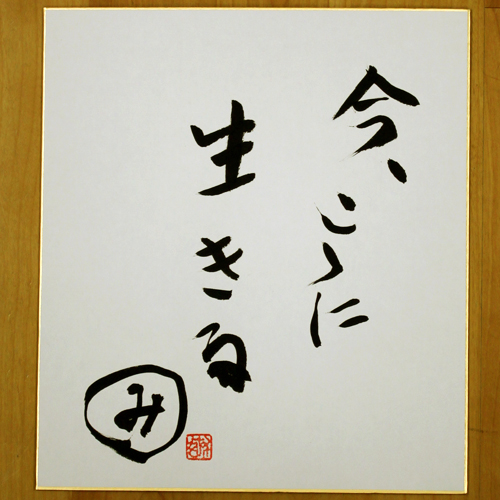 今、こゝに
生きる
み